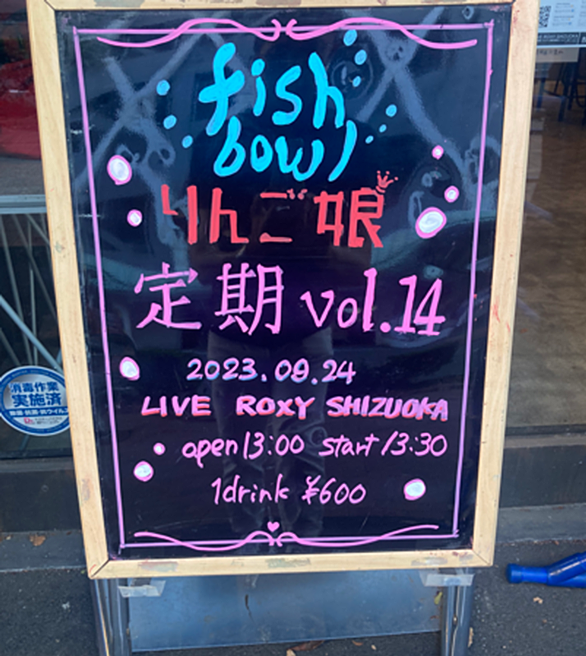 fish
bowl
りんご娘
定期 vol.14
2023.09.24
LIVE ROXY SHIZUOKA
open 13:00 start 13:30
1drink ¥600
消毒作業
実施済